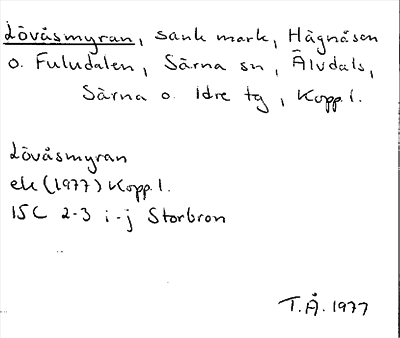 Lövåsmyran, sank mark, Hägnåsen
o. Fuludalen, Särna sn, Älvdals,
Särna o. Idre tg, Kopp. l.
Lövåsmyran
ek (1977) Kopp. l.
15C 2-3 i-j Storbron
T.Å. 1977